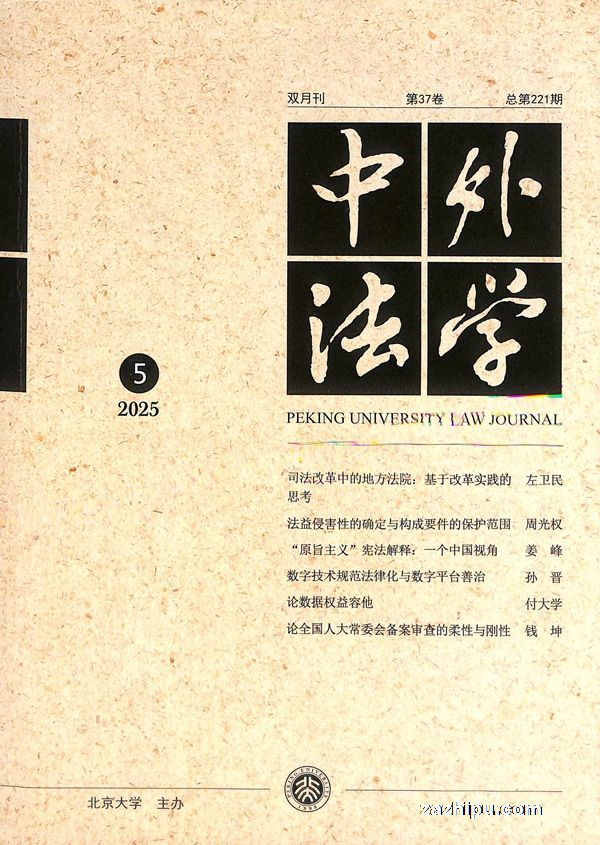 双月刊 第37卷 总第221期
中外
法学
5
2025
PEKING UNIVERSITY LAW JOURNAL
司法改革中的地方法院：基于改革实践的 左卫民
思考
法益侵害性的确定与构成要件的保护范围 周光权
“原旨主义”宪法解释：一个中国视角 姜 峰
数字技术规范法律化与数字平台善治 孙 晋
论数据权益容他 付大学
论全国人大常委会备案审查的柔性与刚性 钱 坤
PEKING UNIVERSITY
1898
北京大学 主办
zazhipu.com